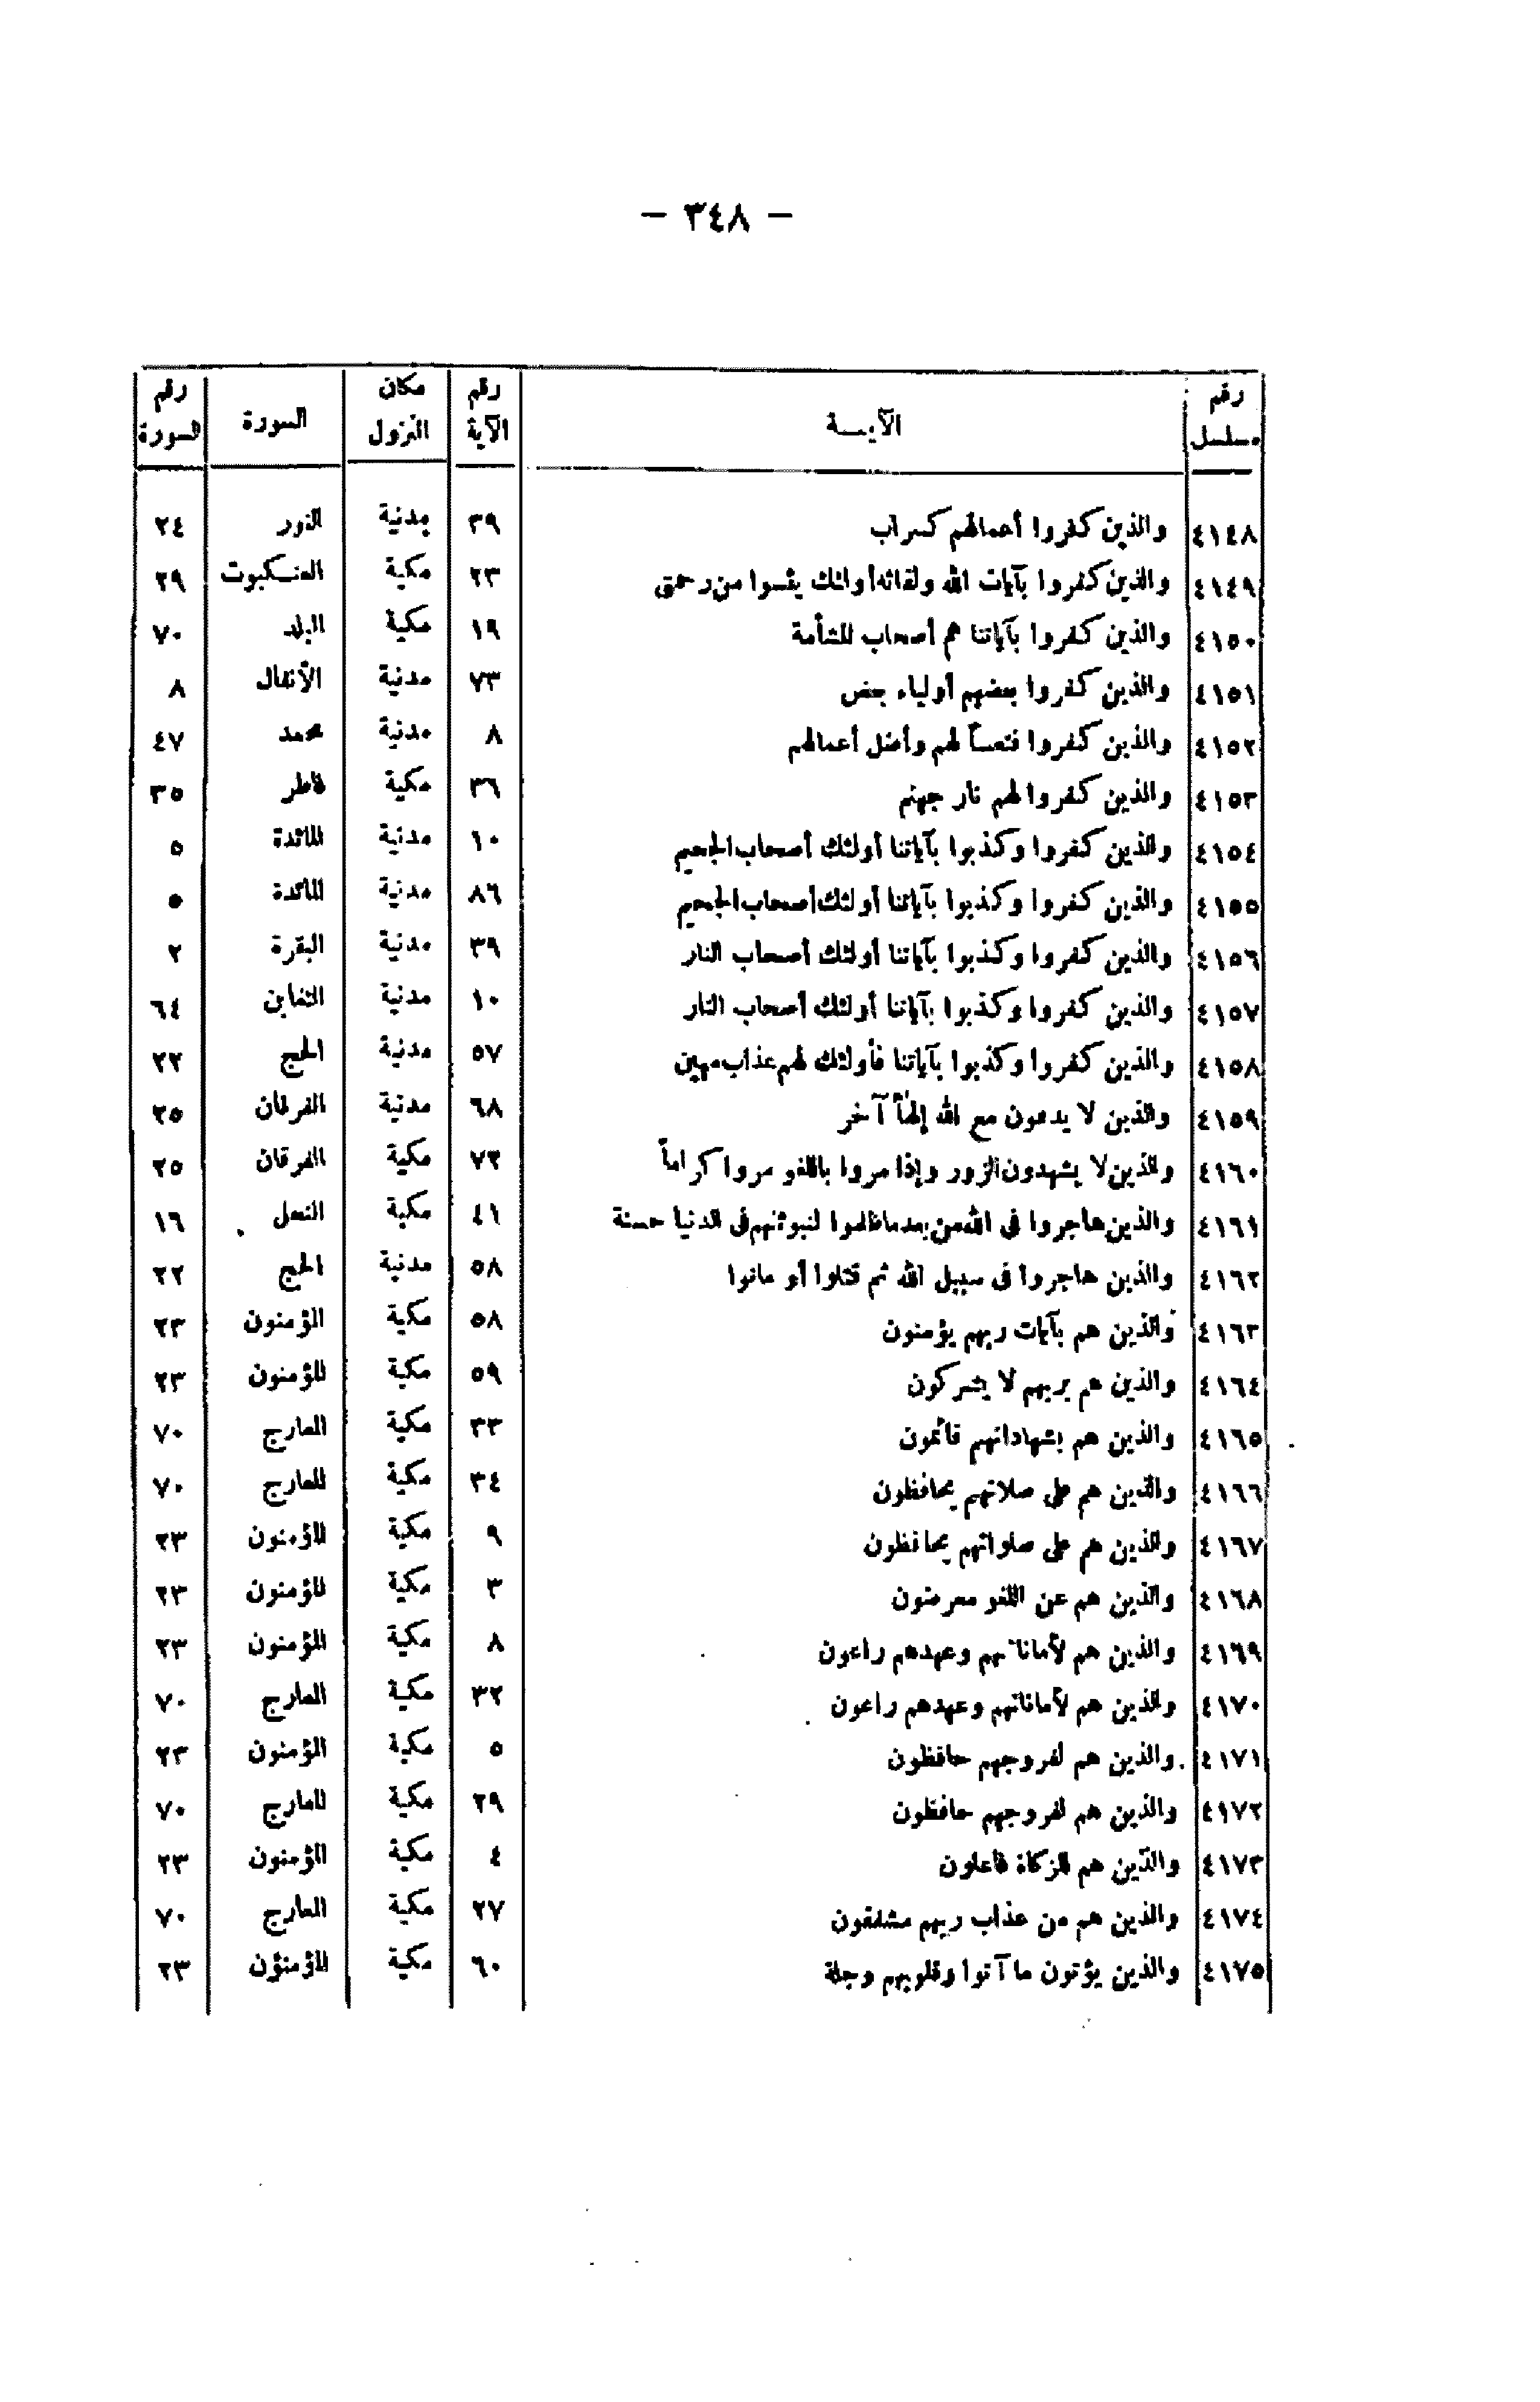 — ٣٤٨ —
رقم مسلسل | الآيـــة | رقم الآية | مكان النزول | السورة | رقم السورة
٤١٤٨ | والذين كفروا أعمالهم كسراب | ٣٩ | مدنية | النور | ٢٤
٤١٤٩ | والذين كفروا بآيات الله ولقائه أولئك يئسوا من رحمتى | ٢٣ | مكية | العنكبوت | ٢٩
٤١٥٠ | والذين كفروا بآياتنا هم أصحاب المشأمة | ١٩ | مكية | البلد | ٧٠
٤١٥١ | والذين كفروا بعضهم أولياء بعض | ٧٣ | مدنية | الأنفال | ٨
٤١٥٢ | والذين كفروا فتعساً لهم وأضل أعمالهم | ٨ | مدنية | محمد | ٤٧
٤١٥٣ | والذين كفروا لهم نار جهنم | ٣٦ | مكية | فاطر | ٣٥
٤١٥٤ | والذين كفروا وكذبوا بآياتنا أولئك أصحاب الجحيم | ١٠ | مدنية | المائدة | ٥
٤١٥٥ | والذين كفروا وكذبوا بآياتنا أولئك أصحاب الجحيم | ٨٦ | مدنية | المائدة | ٥
٤١٥٦ | والذين كفروا وكذبوا بآياتنا أولئك أصحاب النار | ٣٩ | مدنية | البقرة | ٢
٤١٥٧ | والذين كفروا وكذبوا بآياتنا أولئك أصحاب النار | ١٠ | مدنية | التغابن | ٦٤
٤١٥٨ | والذين كفروا وكذبوا بآياتنا فأولئك لهم عذاب مهين | ٥٧ | مدنية | الحج | ٢٢
٤١٥٩ | والذين لا يدعون مع الله إلهاً آخر | ٦٨ | مدنية | الفرقان | ٢٥
٤١٦٠ | والذين لا يشهدون الزور وإذا مروا باللغو مروا كراماً | ٧٢ | مكية | الفرقان | ٢٥
٤١٦١ | والذين هاجروا فى الله من بعد ما ظلموا لنبوئنهم فى الدنيا حسنة | ٤١ | مكية | النحل | ١٦
٤١٦٢ | والذين هاجروا فى سبيل الله ثم قتلوا أو ماتوا | ٥٨ | مدنية | الحج | ٢٢
٤١٦٣ | والذين هم بآيات ربهم يؤمنون | ٥٨ | مكية | المؤمنون | ٢٣
٤١٦٤ | والذين هم بربهم لا يشركون | ٥٩ | مكية | المؤمنون | ٢٣
٤١٦٥ | والذين هم بشهاداتهم قائمون | ٣٣ | مكية | المعارج | ٧٠
٤١٦٦ | والذين هم على صلاتهم يحافظون | ٣٤ | مكية | المعارج | ٧٠
٤١٦٧ | والذين هم على صلواتهم يحافظون | ٩ | مكية | المؤمنون | ٢٣
٤١٦٨ | والذين هم عن اللغو معرضون | ٣ | مكية | المؤمنون | ٢٣
٤١٦٩ | والذين هم لأماناتهم وعهدهم راعون | ٨ | مكية | المؤمنون | ٢٣
٤١٧٠ | والذين هم لأماناتهم وعهدهم راعون | ٣٢ | مكية | المعارج | ٧٠
٤١٧١ | والذين هم لفروجهم حافظون | ٥ | مكية | المؤمنون | ٢٣
٤١٧٢ | والذين هم لفروجهم حافظون | ٢٩ | مكية | المعارج | ٧٠
٤١٧٣ | والذين هم للزكاة فاعلون | ٤ | مكية | المؤمنون | ٢٣
٤١٧٤ | والذين هم من عذاب ربهم مشفقون | ٢٧ | مكية | المعارج | ٧٠
٤١٧٥ | والذين يؤتون ما آتوا وقلوبهم وجلة | ٦٠ | مكية | المؤمنون | ٢٣